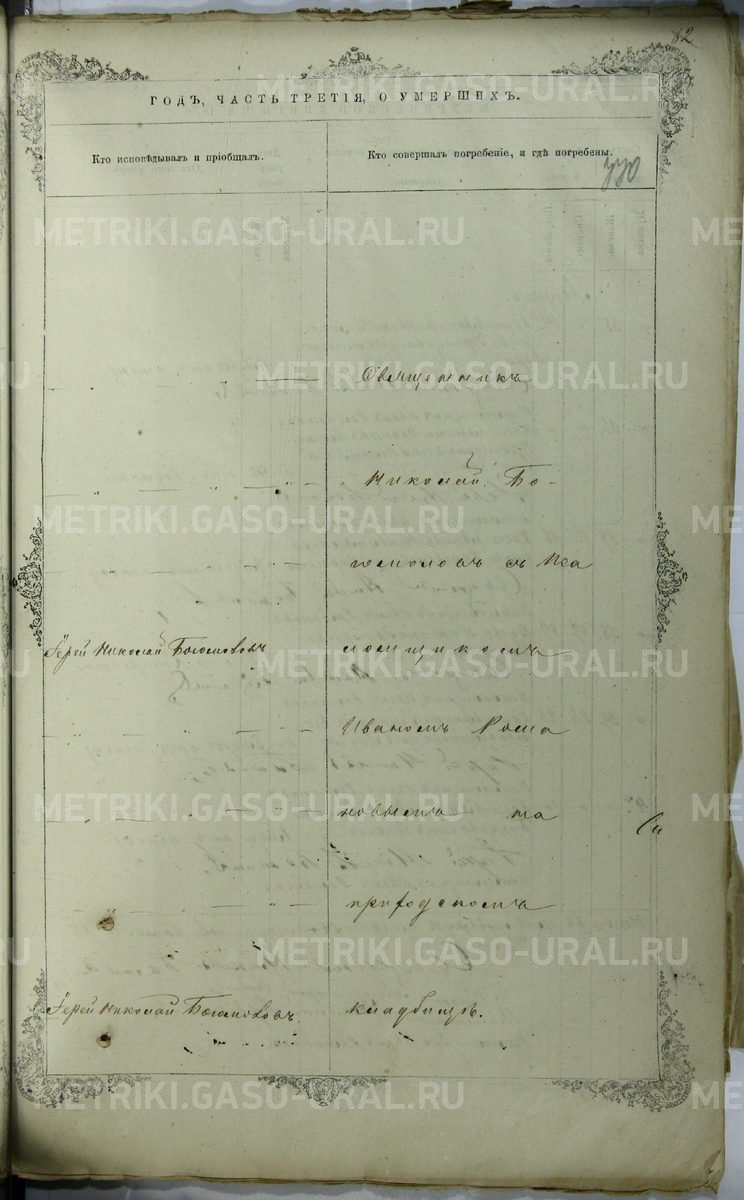 82
ГОДЪ, ЧАСТЬ ТРЕТІЯ, О УМЕРШИХЪ.
Кто исповѣдывалъ и пріобщалъ.
Кто совершалъ погребеніе, и гдѣ погребены.
METRIKI.GASO-URAL.RU
Священникъ
Николай Бо-
гомоловъ съ Пса
Іерей Николай Богомоловъ
ломщикомъ
Иваномъ Рома
новымъ на
приходскомъ
Іерей Николай Богомоловъ
кладбищѣ.